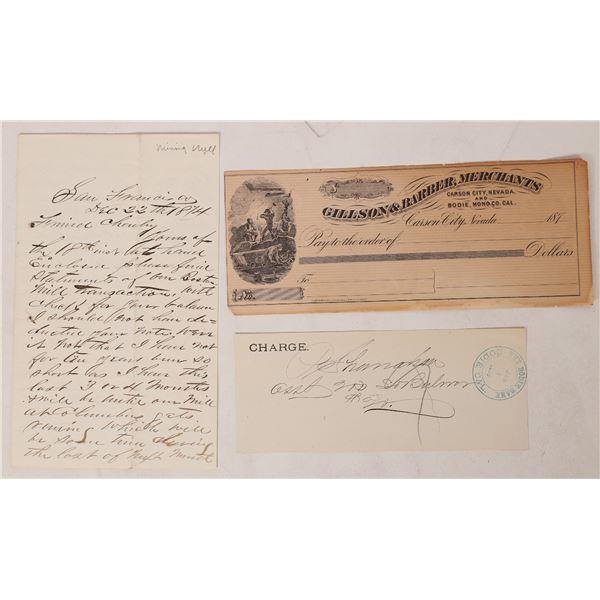 Mining
San Francisco
Dec 22th 1874
Friend
Yours of
the 18th inst at hand
Enclose please find
Statements of our
Mill transactions with
Check for your balance
I should not have de-
ducted your note were
it not that I have not
for ten years been so
short as I have this
last 3 or 4 months
& will be until our Mill
at Columbus gets
running which will
be some time during
the last of next month
GILLSON & BARBER, MERCHANTS
CARSON CITY, NEVADA.
AND
BODIE, MONO. CO. CAL.
$
Carson City, Nevada 187
Pay to the order of
Dollars
To
No.
CHARGE.
THE BODIE BANK
BODIE, CAL.